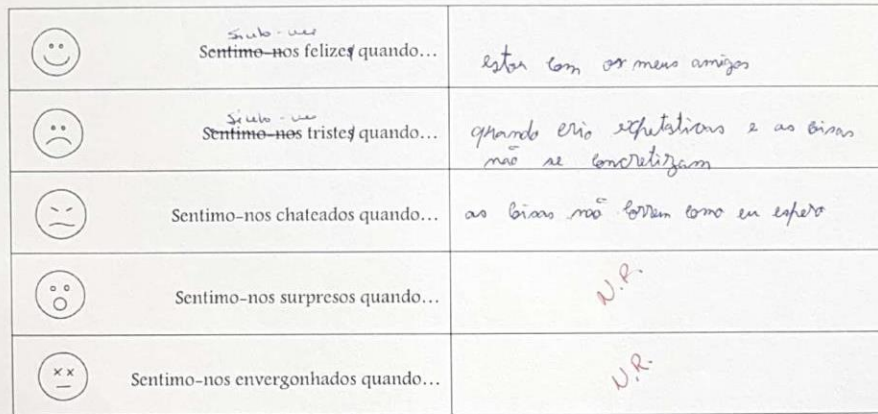 Sinto-me
Sentimo-nos felizes quando...
estou com os meus amigos
Sinto-me
Sentimo-nos tristes quando...
quando crio expetativas e as coisas
não se concretizam
Sentimo-nos chateados quando...
as coisas não correm como eu espero
Sentimo-nos surpresos quando...
N.R.
Sentimo-nos envergonhados quando...
N.R.